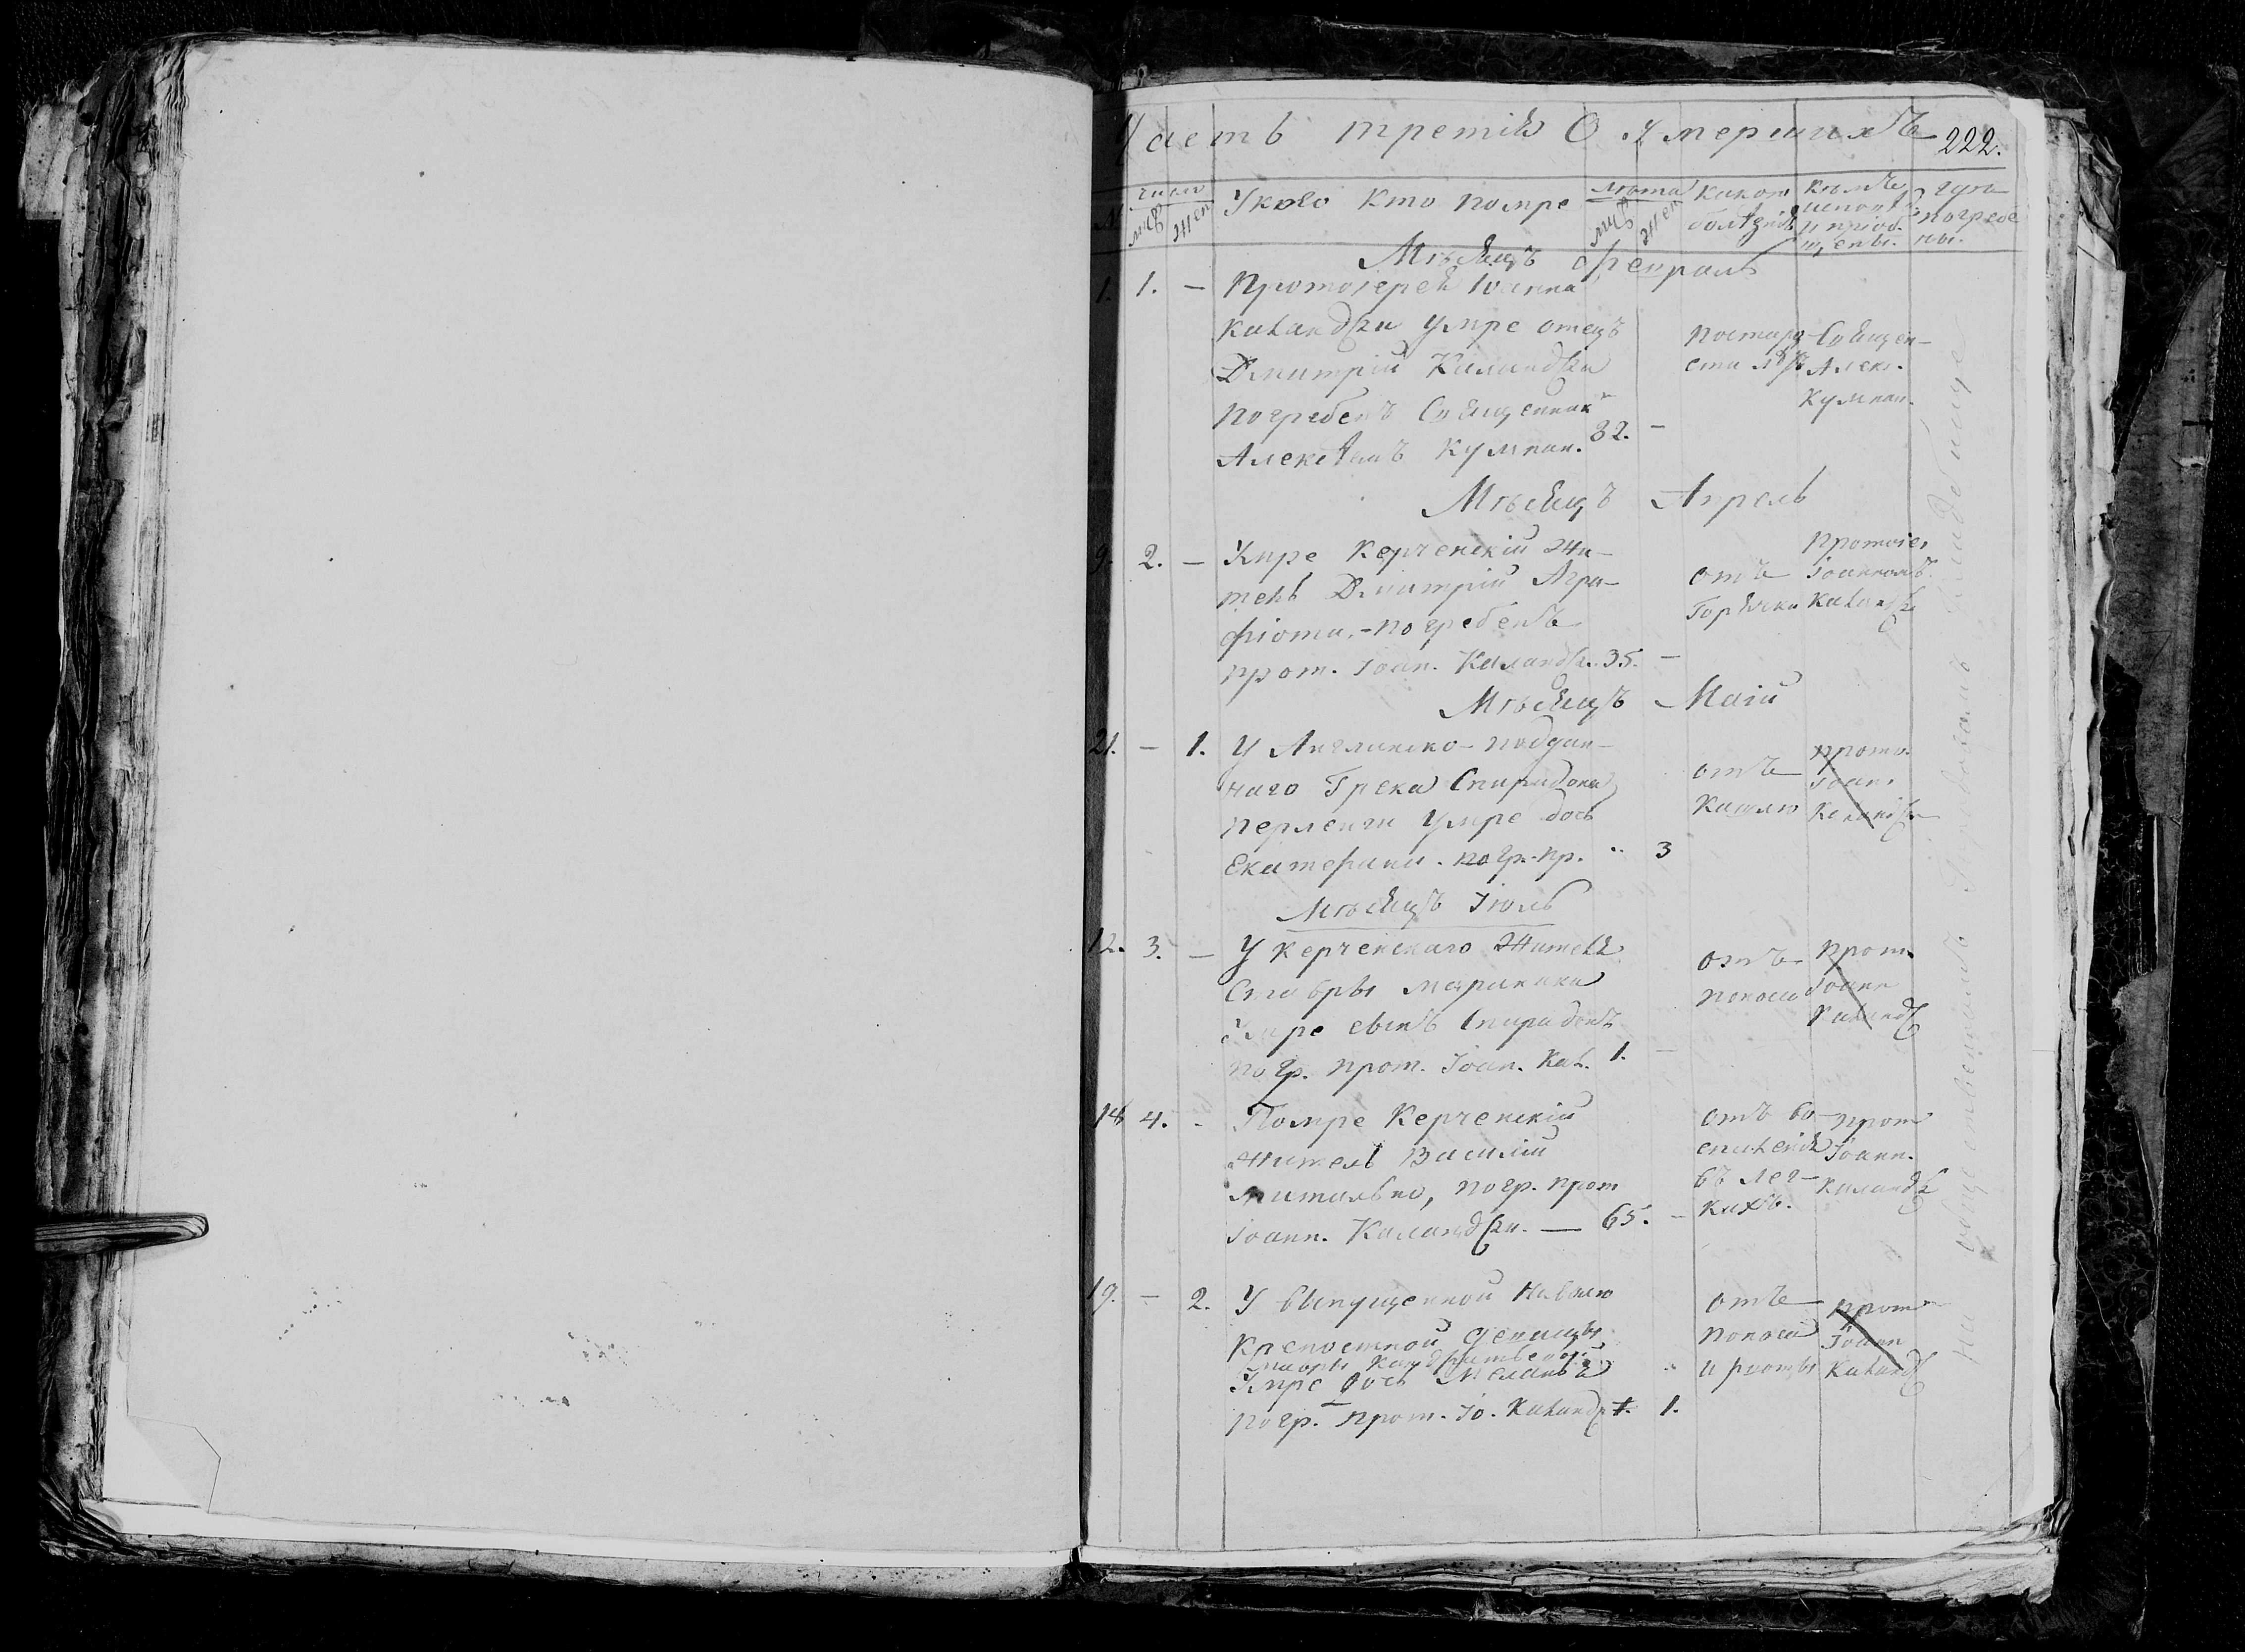 Часть третія О Умершихъ
222.
число
№ муж женс
У кого кто помре
лѣта
муж жен
какою болѣзнію
кѣмъ исповѣ. и пріоб. щены.
гдѣ погребе ны.
Мѣсяцъ Февраль
1. 1. — Протоіерея Іоанна
Каландзи умре отецъ
Дмитрій Каландзи
погребенъ Священник
Алексѣемъ Кумпан. 82. —
по старо сти лѣтъ
Священ- Алекс. Кумпан.
Мѣсяцъ Апрель
9. 2. — Умре Керченскій жи-
тель Дмитрій Агра-
фіоти. - погребенъ
прот. Іоан. Каландзи. 35. —
отъ Горячки
Протоіе, Іоанномъ Каландз
Мѣсяцъ Маій
21. — 1. У Англинско-поддан-
наго Грека Спиридона
умре дось
Екатерини. погр. пр. .. 3
отъ Кашлю
прото. Іоан. Каландз
Мѣсяцъ Іюль
12. 3. — У Керченскаго жителя
Ставры Маринаки
Умре сынъ Спиридонъ
погр. прот. Іоан. Кал. 1. —
отъ поноса
прот. Іоанн Каландз
14 4. - Помре Керченскій
житель Василій
погр. прот
Іоанн. Каландзи. — 65. -
отъ во- спаленія въ лег- кихъ.
прот Іоанн. Каландз
19. — 2. У выпущенной на волю
крепостной девицы
Умре дось Меланья
погр. прот. Іо. Каландз 1. 1.
отъ поноса и рвоты
прот Іоанн Каландз
На общественномъ кладбище